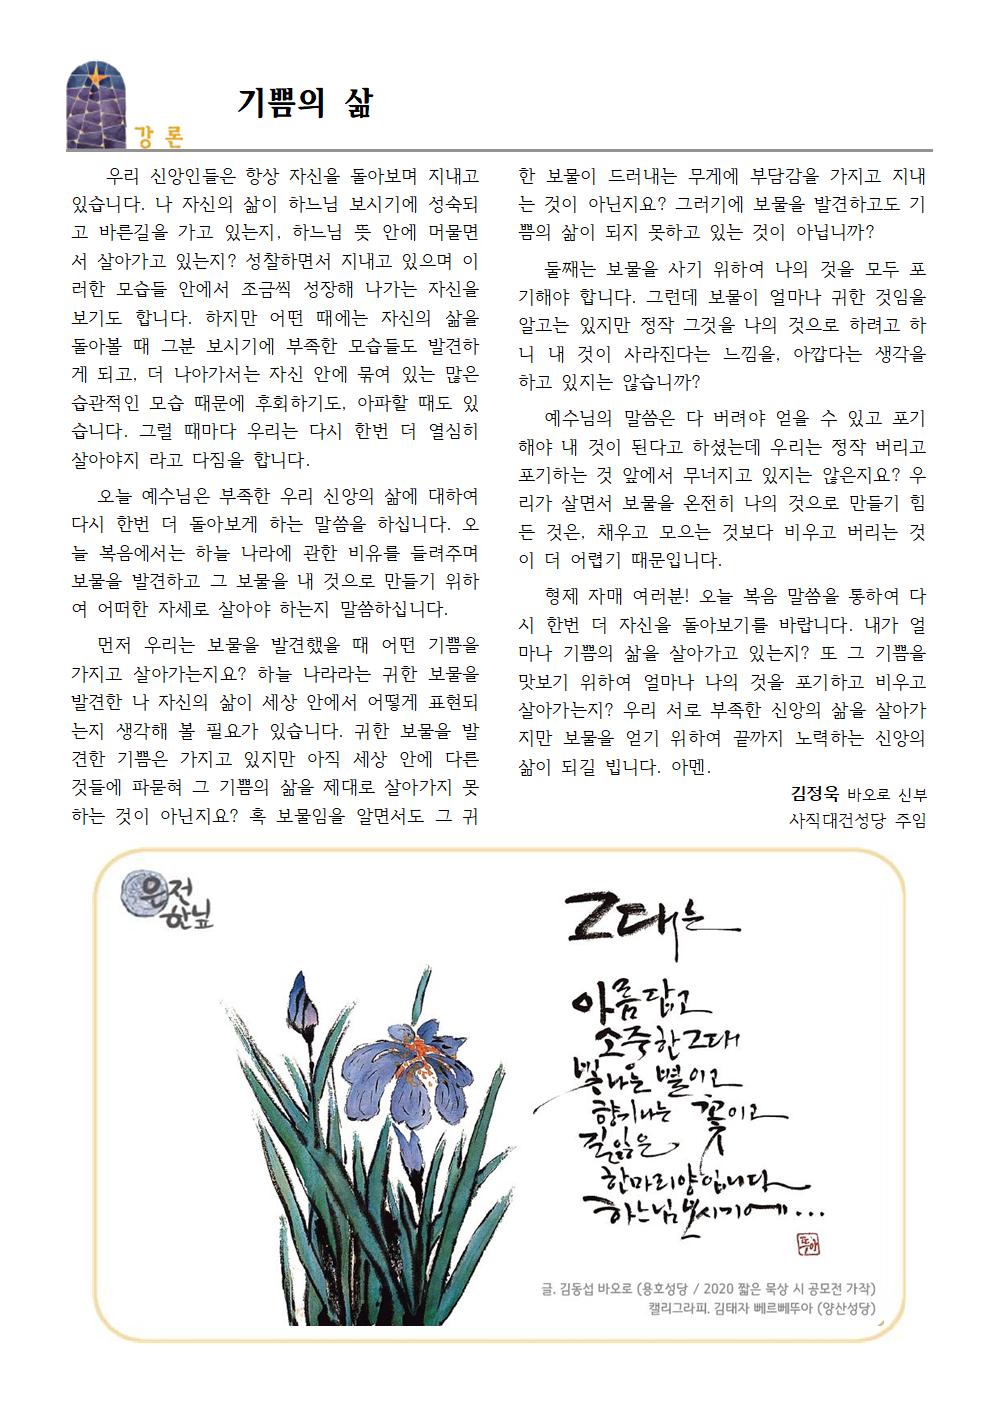 강 론
기쁨의 삶
우리 신앙인들은 항상 자신을 돌아보며 지내고
있습니다. 나 자신의 삶이 하느님 보시기에 성숙되
고 바른길을 가고 있는지, 하느님 뜻 안에 머물면
서 살아가고 있는지? 성찰하면서 지내고 있으며 이
러한 모습들 안에서 조금씩 성장해 나가는 자신을
보기도 합니다. 하지만 어떤 때에는 자신의 삶을
돌아볼 때 그분 보시기에 부족한 모습들도 발견하
게 되고, 더 나아가서는 자신 안에 묶여 있는 많은
습관적인 모습 때문에 후회하기도, 아파할 때도 있
습니다. 그럴 때마다 우리는 다시 한번 더 열심히
살아야지 라고 다짐을 합니다.
오늘 예수님은 부족한 우리 신앙의 삶에 대하여
다시 한번 더 돌아보게 하는 말씀을 하십니다. 오
늘 복음에서는 하늘 나라에 관한 비유를 들려주며
보물을 발견하고 그 보물을 내 것으로 만들기 위하
여 어떠한 자세로 살아야 하는지 말씀하십니다.
먼저 우리는 보물을 발견했을 때 어떤 기쁨을
가지고 살아가는지요? 하늘 나라라는 귀한 보물을
발견한 나 자신의 삶이 세상 안에서 어떻게 표현되
는지 생각해 볼 필요가 있습니다. 귀한 보물을 발
견한 기쁨은 가지고 있지만 아직 세상 안에 다른
것들에 파묻혀 그 기쁨의 삶을 제대로 살아가지 못
하는 것이 아닌지요? 혹 보물임을 알면서도 그 귀
한 보물이 드러내는 무게에 부담감을 가지고 지내
는 것이 아닌지요? 그러기에 보물을 발견하고도 기
쁨의 삶이 되지 못하고 있는 것이 아닙니까?
둘째는 보물을 사기 위하여 나의 것을 모두 포
기해야 합니다. 그런데 보물이 얼마나 귀한 것임을
알고는 있지만 정작 그것을 나의 것으로 하려고 하
니 내 것이 사라진다는 느낌을, 아깝다는 생각을
하고 있지는 않습니까?
예수님의 말씀은 다 버려야 얻을 수 있고 포기
해야 내 것이 된다고 하셨는데 우리는 정작 버리고
포기하는 것 앞에서 무너지고 있지는 않은지요? 우
리가 살면서 보물을 온전히 나의 것으로 만들기 힘
든 것은, 채우고 모으는 것보다 비우고 버리는 것
이 더 어렵기 때문입니다.
형제 자매 여러분! 오늘 복음 말씀을 통하여 다
시 한번 더 자신을 돌아보기를 바랍니다. 내가 얼
마나 기쁨의 삶을 살아가고 있는지? 또 그 기쁨을
맛보기 위하여 얼마나 나의 것을 포기하고 비우고
살아가는지? 우리 서로 부족한 신앙의 삶을 살아가
지만 보물을 얻기 위하여 끝까지 노력하는 신앙의
삶이 되길 빕니다. 아멘.
김정욱 바오로 신부
사직대건성당 주임
은전
한닢
그대는
아름답고
소중한 그대
빛나는 별이고
향기나는 꽃이고
길잃은
한마리양입니다
하느님 보시기에...
뚜아
글. 김동섭 바오로 (용호성당 / 2020 짧은 묵상 시 공모전 가작)
캘리그라피. 김태자 베르뻬뚜아 (양산성당)